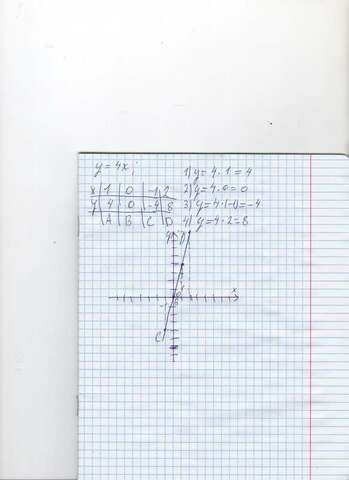 y = 4x;
x | 1 | 0 | -1 | 2
y | 4 | 0 | -4 | 8
A | B | C | D
1) y = 4 · 1 = 4
2) y = 4 · 0 = 0
3) y = 4 · (-1) = -4
4) y = 4 · 2 = 8
y D
x
-1
C